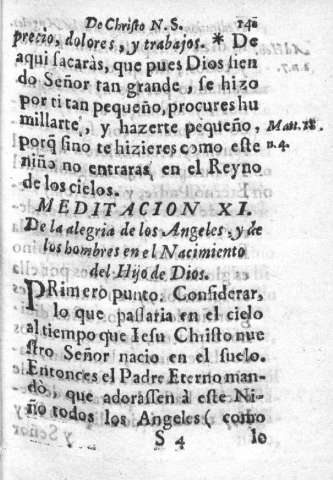 De Christo N. S.
precio, dolores, y trabajos. * De
aqui sacaràs, que pues Dios sien
do Señor tan grande, se hizo
por ti tan pequeño, procures hu
millarte, y hazerte pequeño, Mat. 18.
porq̃ sino te hizieres como este n. 4.
niño no entraras, en el Reyno
de los cielos.
MEDITACION XI.
De la alegria de los Angeles, y de
los hombres en el Nacimiento
del Hijo de Dios.
PRimero punto. Considerar,
lo que passaria en el cielo
al tiempo que Iesu Christo nue
stro Señor nacio en el suelo.
Entonces el Padre Eterno man-
dò, que adorassen à este Ni-
ño todos los Angeles ( como
S 4 lo